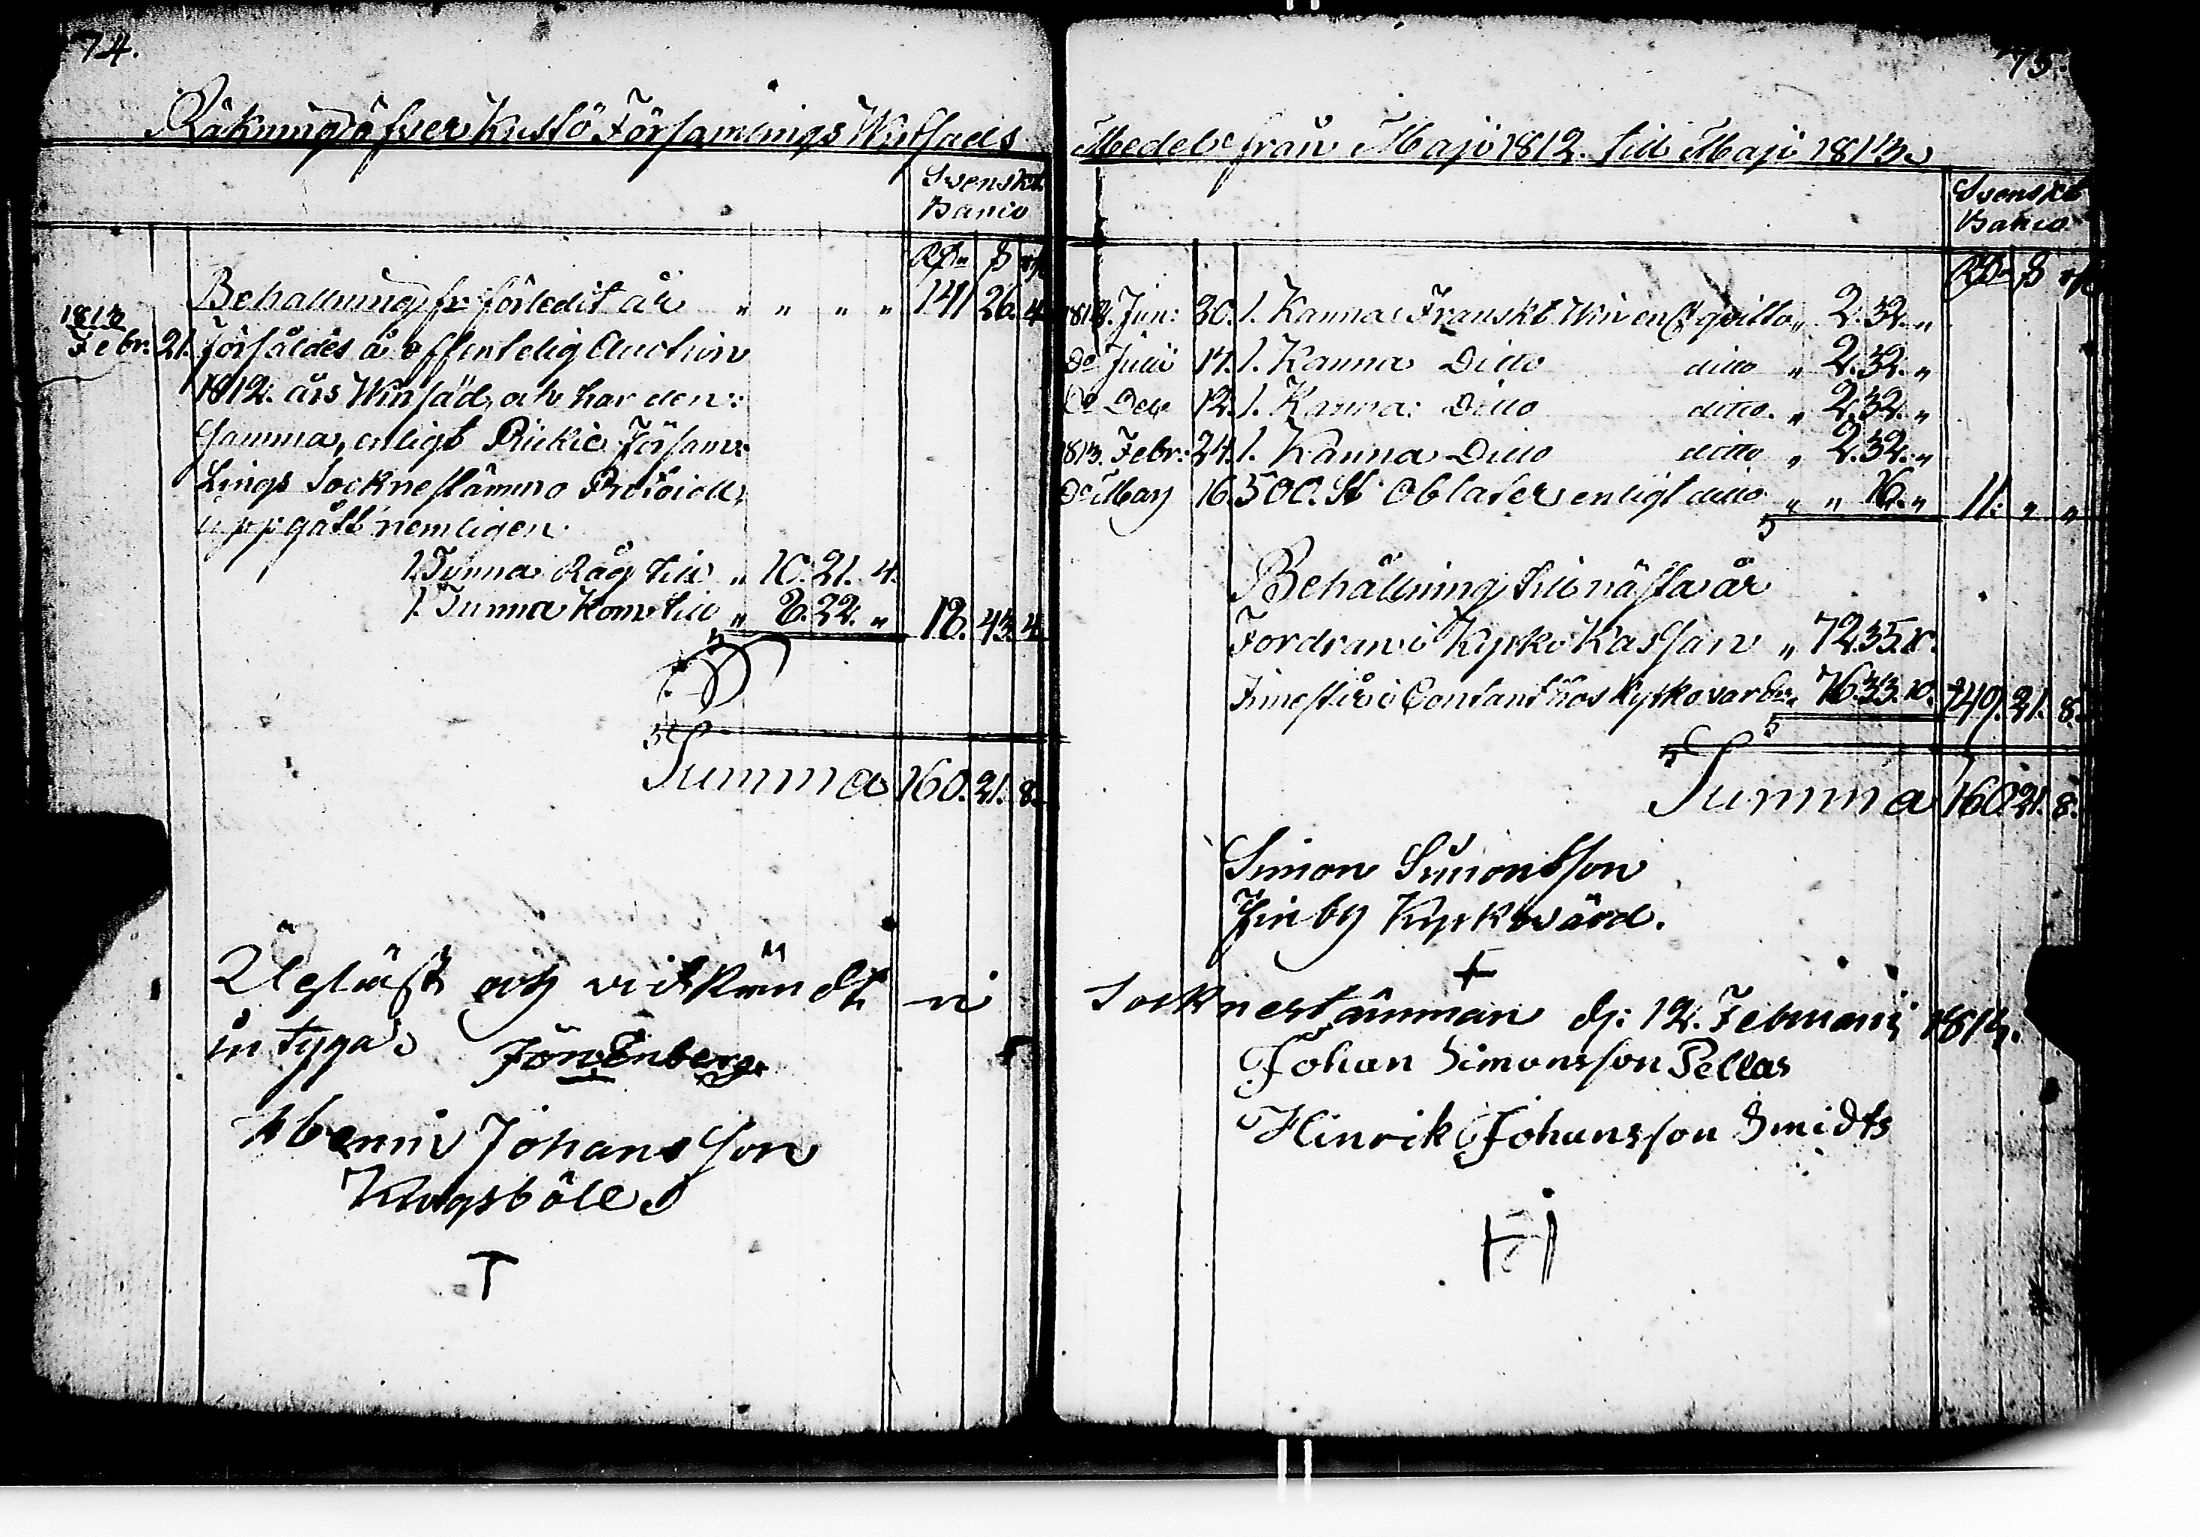 74.
Räkning öfver Kustö Församlings Winsäds
Svenskt
Banco
Rdr ß rst
Behållning fr: förledit år " " " " 141 26. 4.
1813
Febr: 21. Försåldes å offentelig Auction
1812. års Winsäd, och har den:
samma, enligt Pickie Försam:
Lings Sockne stämmo Protocoll,
uppgått nemligen
1. Tunna Råg till " 10. 21. 4.
1. Tunna Korn till " 8. 22. " 18. 43. 4.
Summa 160. 21. 8.
Upläst och vidkändt i
intygas Jön Enberg.
Johansson
Kungsböle
T
75.
Medel från Maji 1812. till Maji 1813.
Svenskt
Banco
Rdr ß rst
1812. Jun: 20. 1. Kanna Franskt Win enl: qvitto " 2. 32. "
Do Julii 14. 1. Kanna Ditto ditto " 2. 32. "
Do Dec 12. 1. Kanna Ditto ditto. " 2. 32. "
1813. Febr: 24. 1. Kanna Ditto ditto " 2. 32. "
Do May 16. 500. St Oblater enligt ditto " " 16. " 11. " "
Behållning till nästa år
Fordran i Kyrko Kassan " 72. 35. 10.
Innestår i Contant hos Kyrkovärden " 76. 33. 10. 149. 21. 8.
Summa 160. 21. 8.
Simon Simonsson
Finby Kyrkovärd.
+
Socknestämman d: 12. Februarii 1814.
Johan Simonsson Pellas
Hinrik Johansson Smidts
HJ